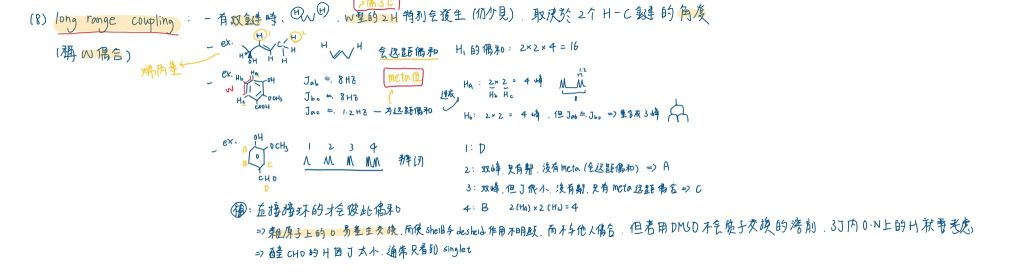 (8) long range coupling : - 有双鍵時, H W H : W型的2H 特別會發生 (仍少見). 取決於 2個 H-C 鍵的角度
(稱 W偶合)
- ex. H H H 會遠距偶和 H₁ 的偶和: 2×2×4 = 16
烯丙基
- ex. Hb Ha OH OCH₃ COOH Hc W
Jab ≒ 8Hz meta位 Ha: 2×2 = 4峰
Hb Hc
1.2
8
Jbc ≒ 8Hz
Jac ≒ 1.2Hz — 为遠距偶和 造成 Hb: 2×2 = 4峰, 但Jab ≒ Jbc => 重合成3峰
- ex. OH OCH₃ CHO A B C D 1 2 3 4 辨別
1: D
2: 双峰, 只有鄰, 沒有meta (會遠距偶和) => A
3: 双峰, 但J很小, 沒有鄰, 只有meta遠距偶合 => C
4: B 2(Ha)×2(Hc)=4
補: 直接接环的才會彼此偶和
=> 雜原子上的 易發生交換, 而使 shield 与 deshield 作用不明顯, 而不与他人偶合, 但若用DMSO不会質子交換的溶剤, 3J内O.N上的H就要考慮
=> 醛CHO的H因J太小, 通常只看到 singlet